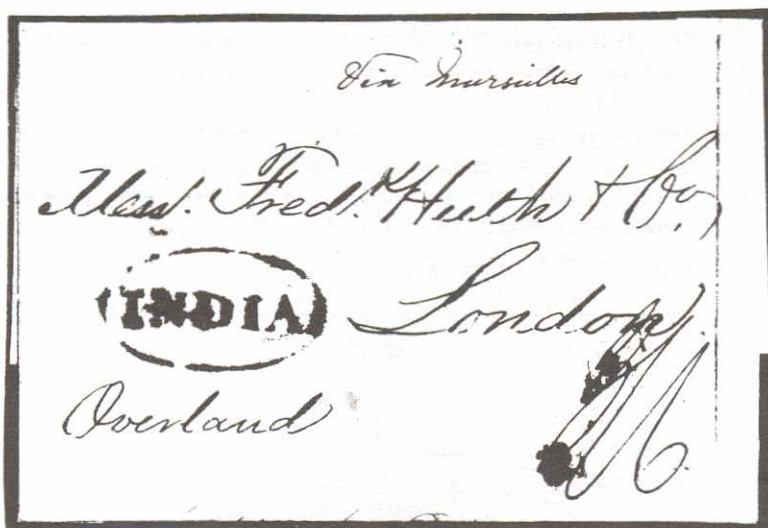 Via Marseilles
Mess. Fred.k Huth & Co,
INDIA
London.
Overland